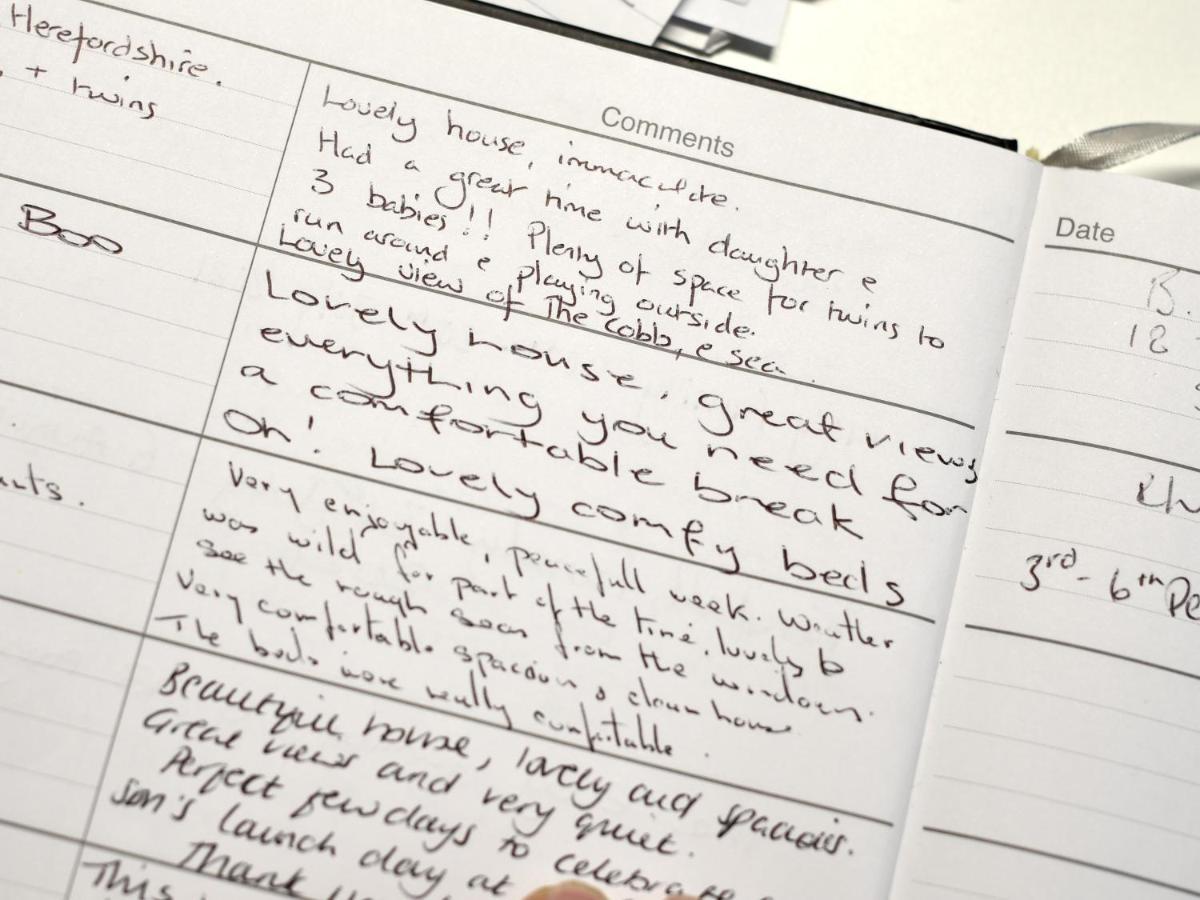 Herefordshire.
+ twins
Comments
Lovely house, immaculate.
Had a great time with daughter e
3 babies!! Plenty of space for twins to
run around e playing outside.
Lovey view of The Cobb, e sea.
Boo
Lovely house, great views
everything you need for
a comfortable break
On! Lovely comfy beds
Very enjoyable, peacefull week. Weather
was wild for part of the time, lovely to
see the rough seas from the windows.
Very comfortable spacious & clean house
The beds were really comfortable.
Beautiful house, lovely and spacious.
Great views and very quiet.
Perfect few days to celebrate
son's launch day at
Thank
This
Date
18
3rd - 6th